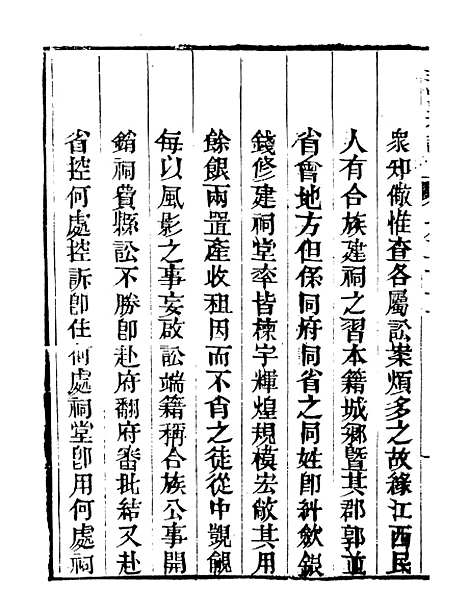 衆知儆惟查各屬訟案煩多之故緣江西民
人有合族建祠之習本籍城鄉曁其郡郭並
省會地方但係同府同省之同姓卽糾斂銀
錢修建祠堂率皆棟宇輝煌規模宏敞其用
餘銀兩置產收租因而不肖之徒從中覬覦
每以風影之事妄啟訟端藉稱合族公事開
銷祠費縣訟不勝卽赴府翻府審批結又赴
省控何處控訴卽住何處祠堂卽用何處祠